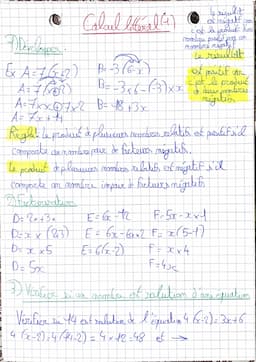 Calcul littéral (4)
le résultat
est négatif car
c'est le produit d'un
nombre positif par un
nombre négatif
1) Développer :
Le résultat
est positif car
c'est le produit
de deux nombres
négatifs
Ex A=7(x+2) B=-3(6-x)
A=7(x+2) B=-3×6-(-3)×x
A=7×x+7×2 B=-18+3x
A=7x+14
Règle: le produit de plusieurs nombres relatifs est positif s'il
comporte un nombre pair de facteurs négatifs.
Le produit de plusieurs nombres relatifs est négatif s'il
comporte un nombre impair de facteurs négatifs.
2) Factorisation
D=2x+3x E=6x-12 F=5x-x×1
D=x×(2+3) E=6x-6×2 F=x(5-1)
D=x×5 E=6(x-2) F=x×4
D=5x F=4x
3) Vérifier si un nombre est solution d'une équation
Vérifier si 14 est solution de l'équation 4(x-2)=3x+6
4(x-2)=4(14-2)=4×12=48 et →